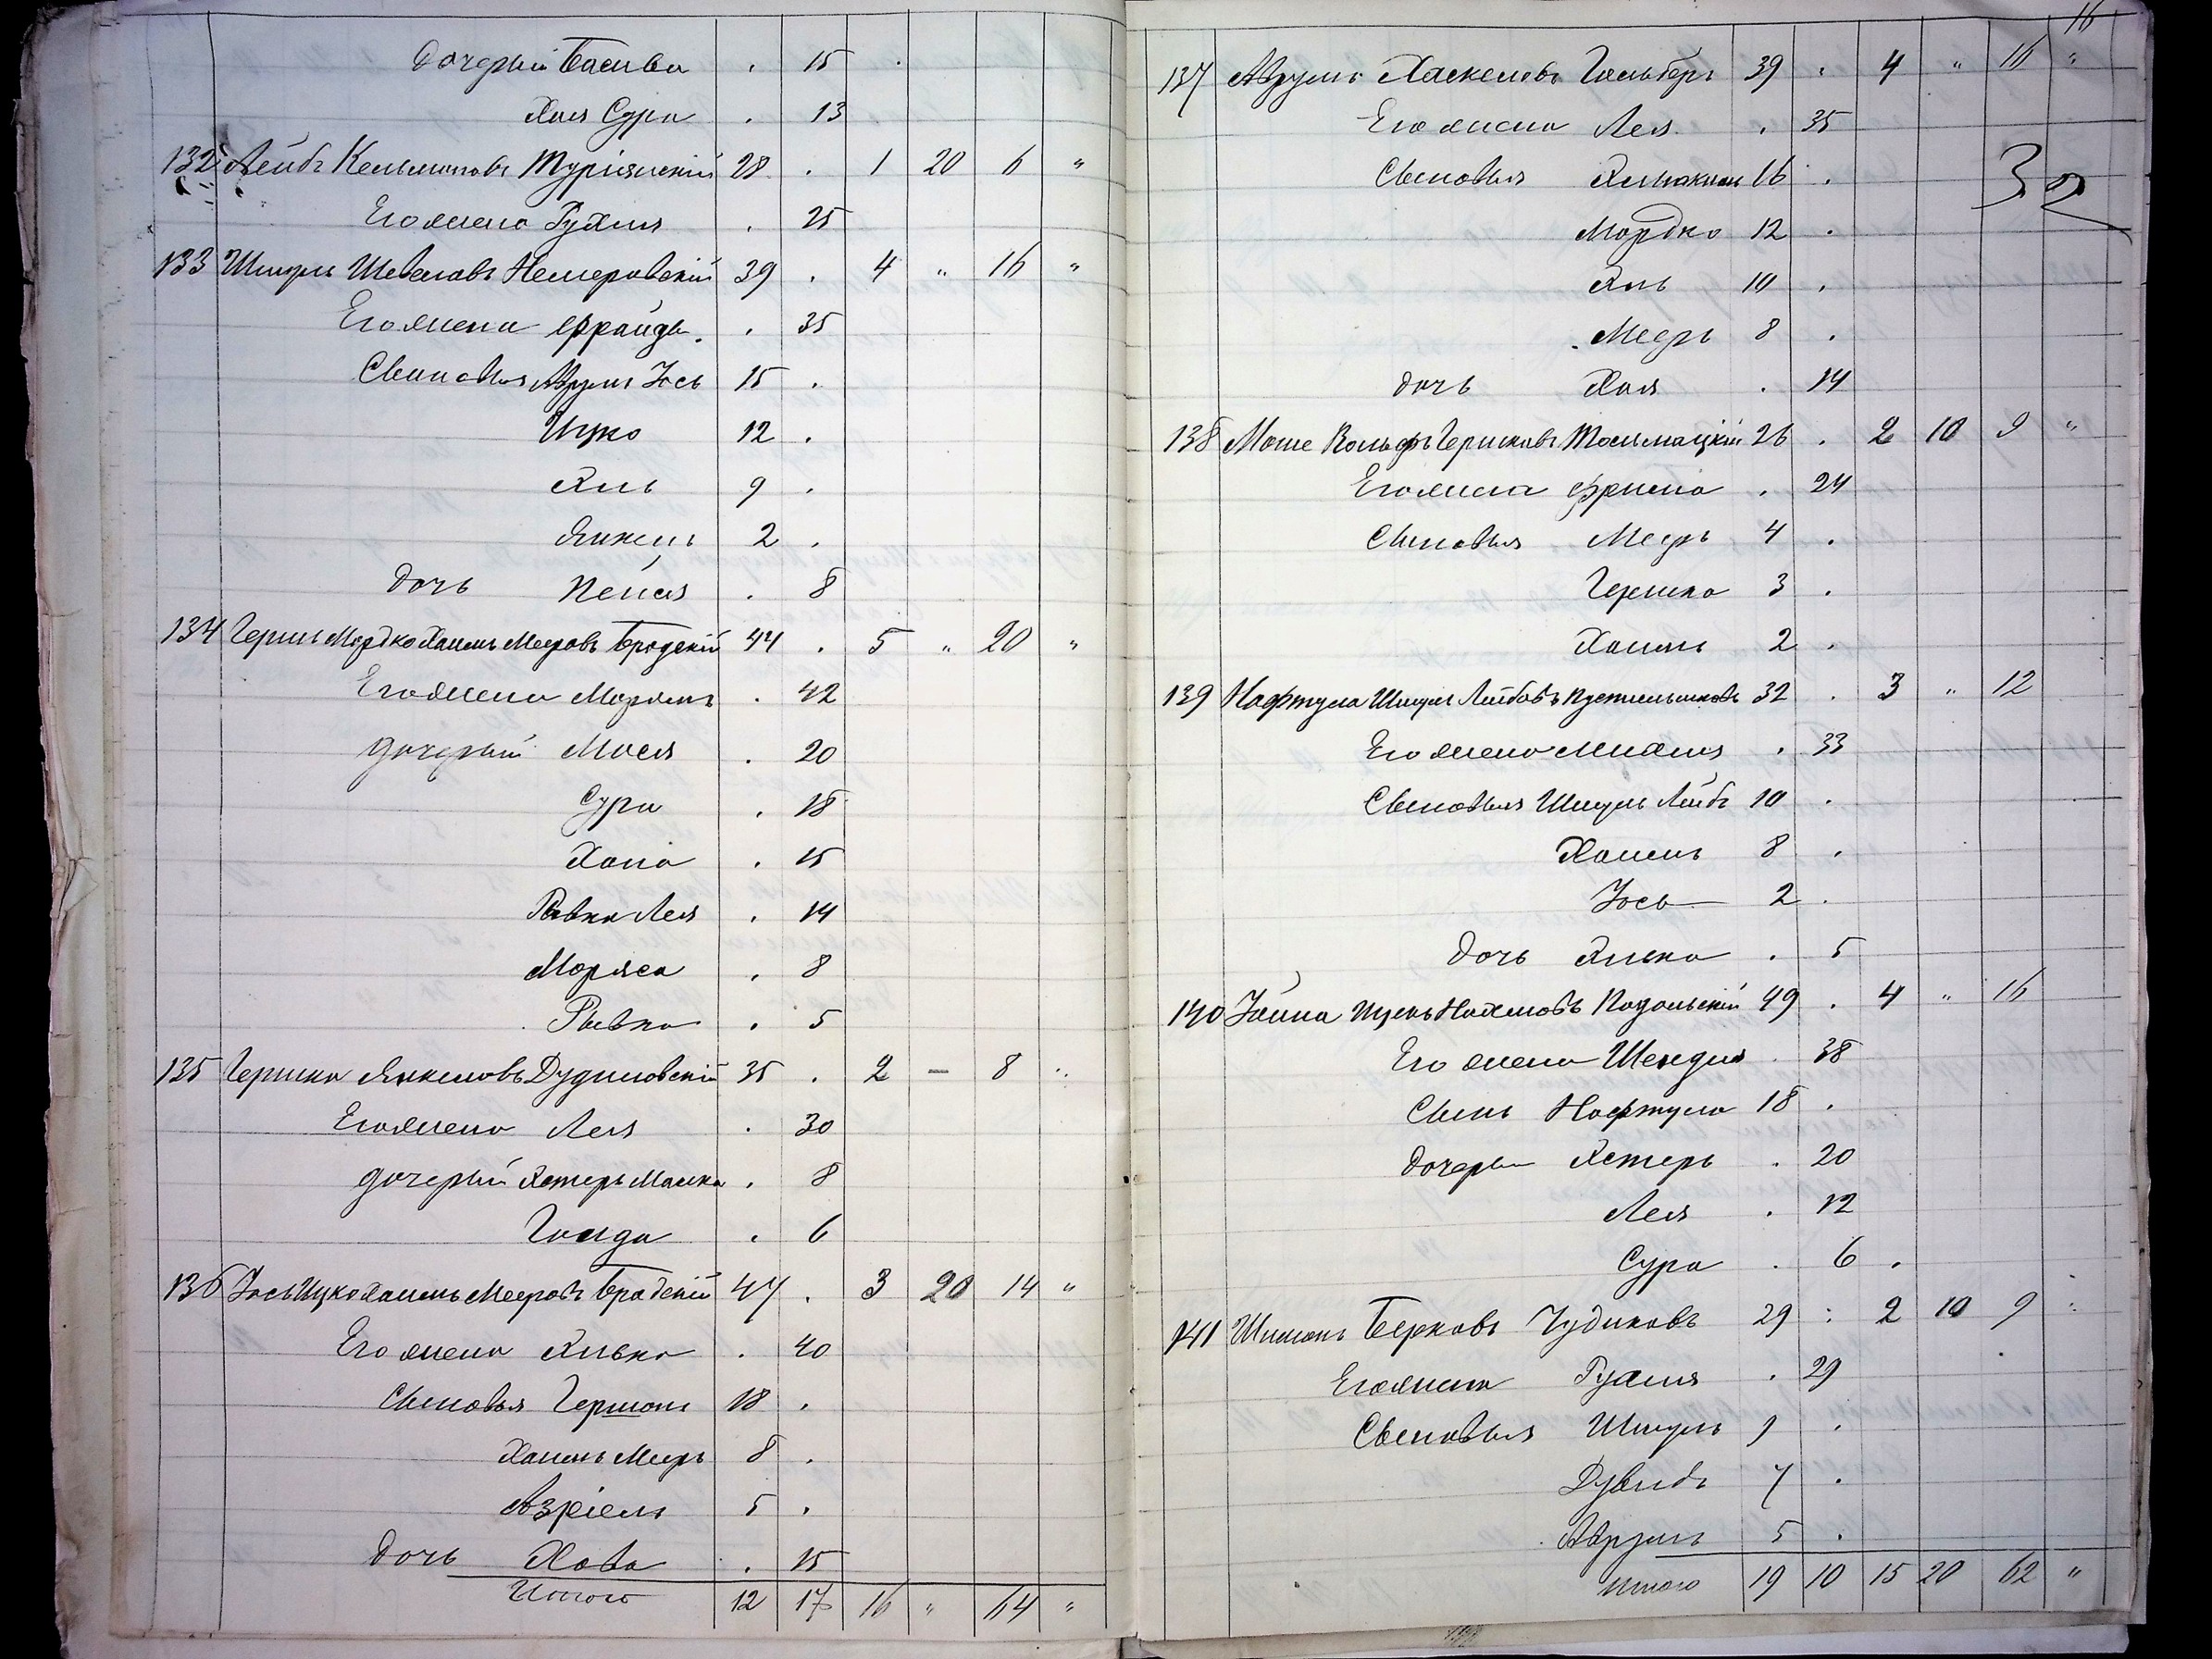 Дочерьи Басива . 15 .
Хая Сура . 13
132 Лейбъ Кельмановъ Турiянскiй 28 . 1 20 6 "
Его жена Рухля . 25
133 Шмуль Шевелевъ Немеровскiй 39 . 4 " 16 "
Его жена Фрайда . 35
Сыновья Аврумъ Іось 15 .
Ицко 12 .
Хиль 9 .
Янкель 2 .
Дочь Пейся . 8
134 Гершъ Мордко Хаимъ Мееровъ Бродскiй 44 . 5 " 20 "
Его жена Марьямъ . 42
Дочерьи Мася . 20
Сура . 18
Хана . 15
Рывка Лея . 14
Маряса . 8
Рывка . 5
135 Гершко Янкелевъ Дудиловскiй 35 . 2 — 8 "
Его жена Лея . 30
дочерьи Хстеръ Малка . 8
Голда . 6
136 Іось Ицко Хаимъ Мееровъ Бродскiй 47 . 3 20 14 "
Его жена Хивка . 40
Сыновья Гершонъ 18 .
Хаимъ Мееръ 8 .
Азрiель 5 .
Дочь Хава . 15
Итого 12 17 16 " 64 "
16
137 Аврумъ Хаскелевъ Гольберъ 39 . 4 " 16 "
Его жена Лея . 35
32
Сыновья 16 .
Мордко 12 .
Хиль 10 .
Мееръ 8 .
Дочь Хая . 14
138 Моше Вольфъ Гершковъ Толмацкiй 26 . 2 10 9 "
Его жена Фрима . 24
Сыновья Мееръ 4 .
Гершко 3 .
Хаимъ 2 .
139 Нафтула Шмуль Лейбовъ Пустильниковъ 32 . 3 " 12
Его жена Михля . 33
Сыновья Шмуль Лейбъ 10 .
Хаимъ 8 .
Іось 2 .
Дочь Хивка . 5
140 Іойна Нухимовъ Подольскiй 49 . 4 " 16
Его жена Шендля . 38
Сынъ Нафтула 18 .
Дочерьи Хстеръ . 20
Лея . 12
Сура . 6 .
141 Шимонъ Берковъ Чудиковъ 29 : 2 10 9 "
Его жена Рухля . 29
Сыновья Шмуль 9 .
Дувидъ 7 .
Аврумъ 5 .
Итого 19 10 15 20 62 "